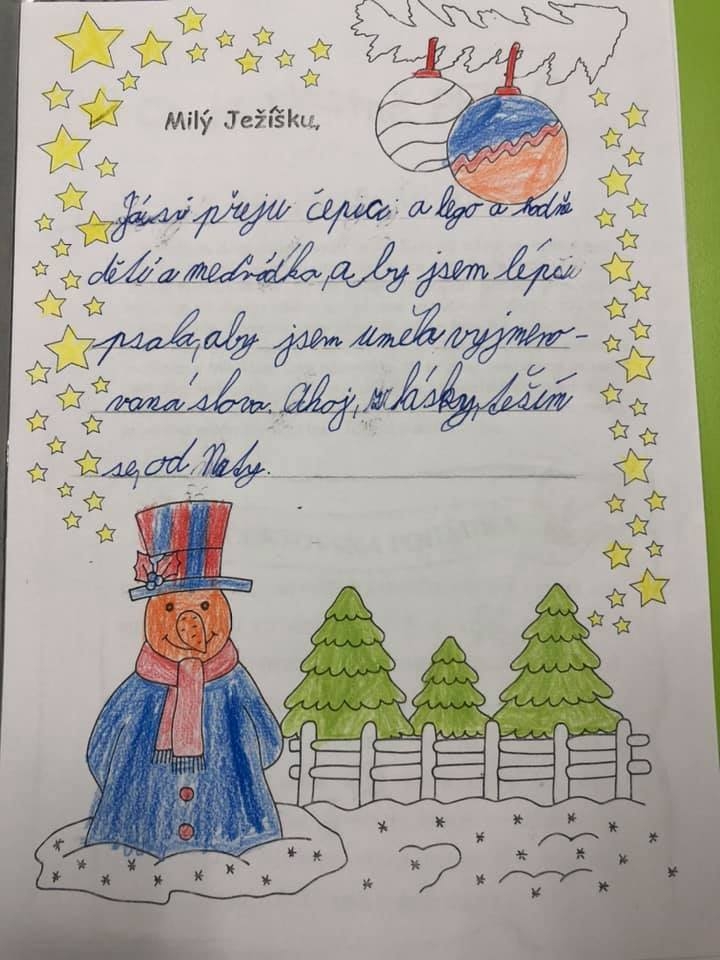 Milý Ježíšku,
Já si přeju čepici a lego a hodně
dětí a meďvádka, a by jsem lépe
psala, aby jsem uměla vyjmeno-
vaná slova. Ahoj, z lásky, těším
se, od Naty.